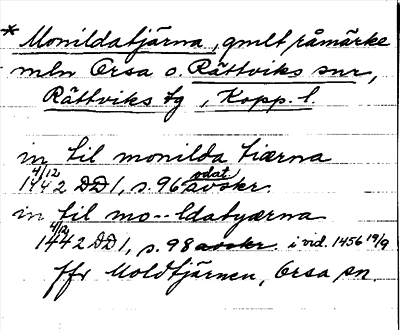 *Monildatjärna, gmlt råmärke
mln Orsa o. Rättviks snr,
Rättviks tg, Kopp. l.
in til monilda tiærna
4/12 1442 DD 1, s. 96 odat. avskr.
in til mo--ldatyærna
4/12 1442 DD 1, s. 98 avskr. i vid. 1456 19/9
Jfr Moldtjärnen, Orsa sn.